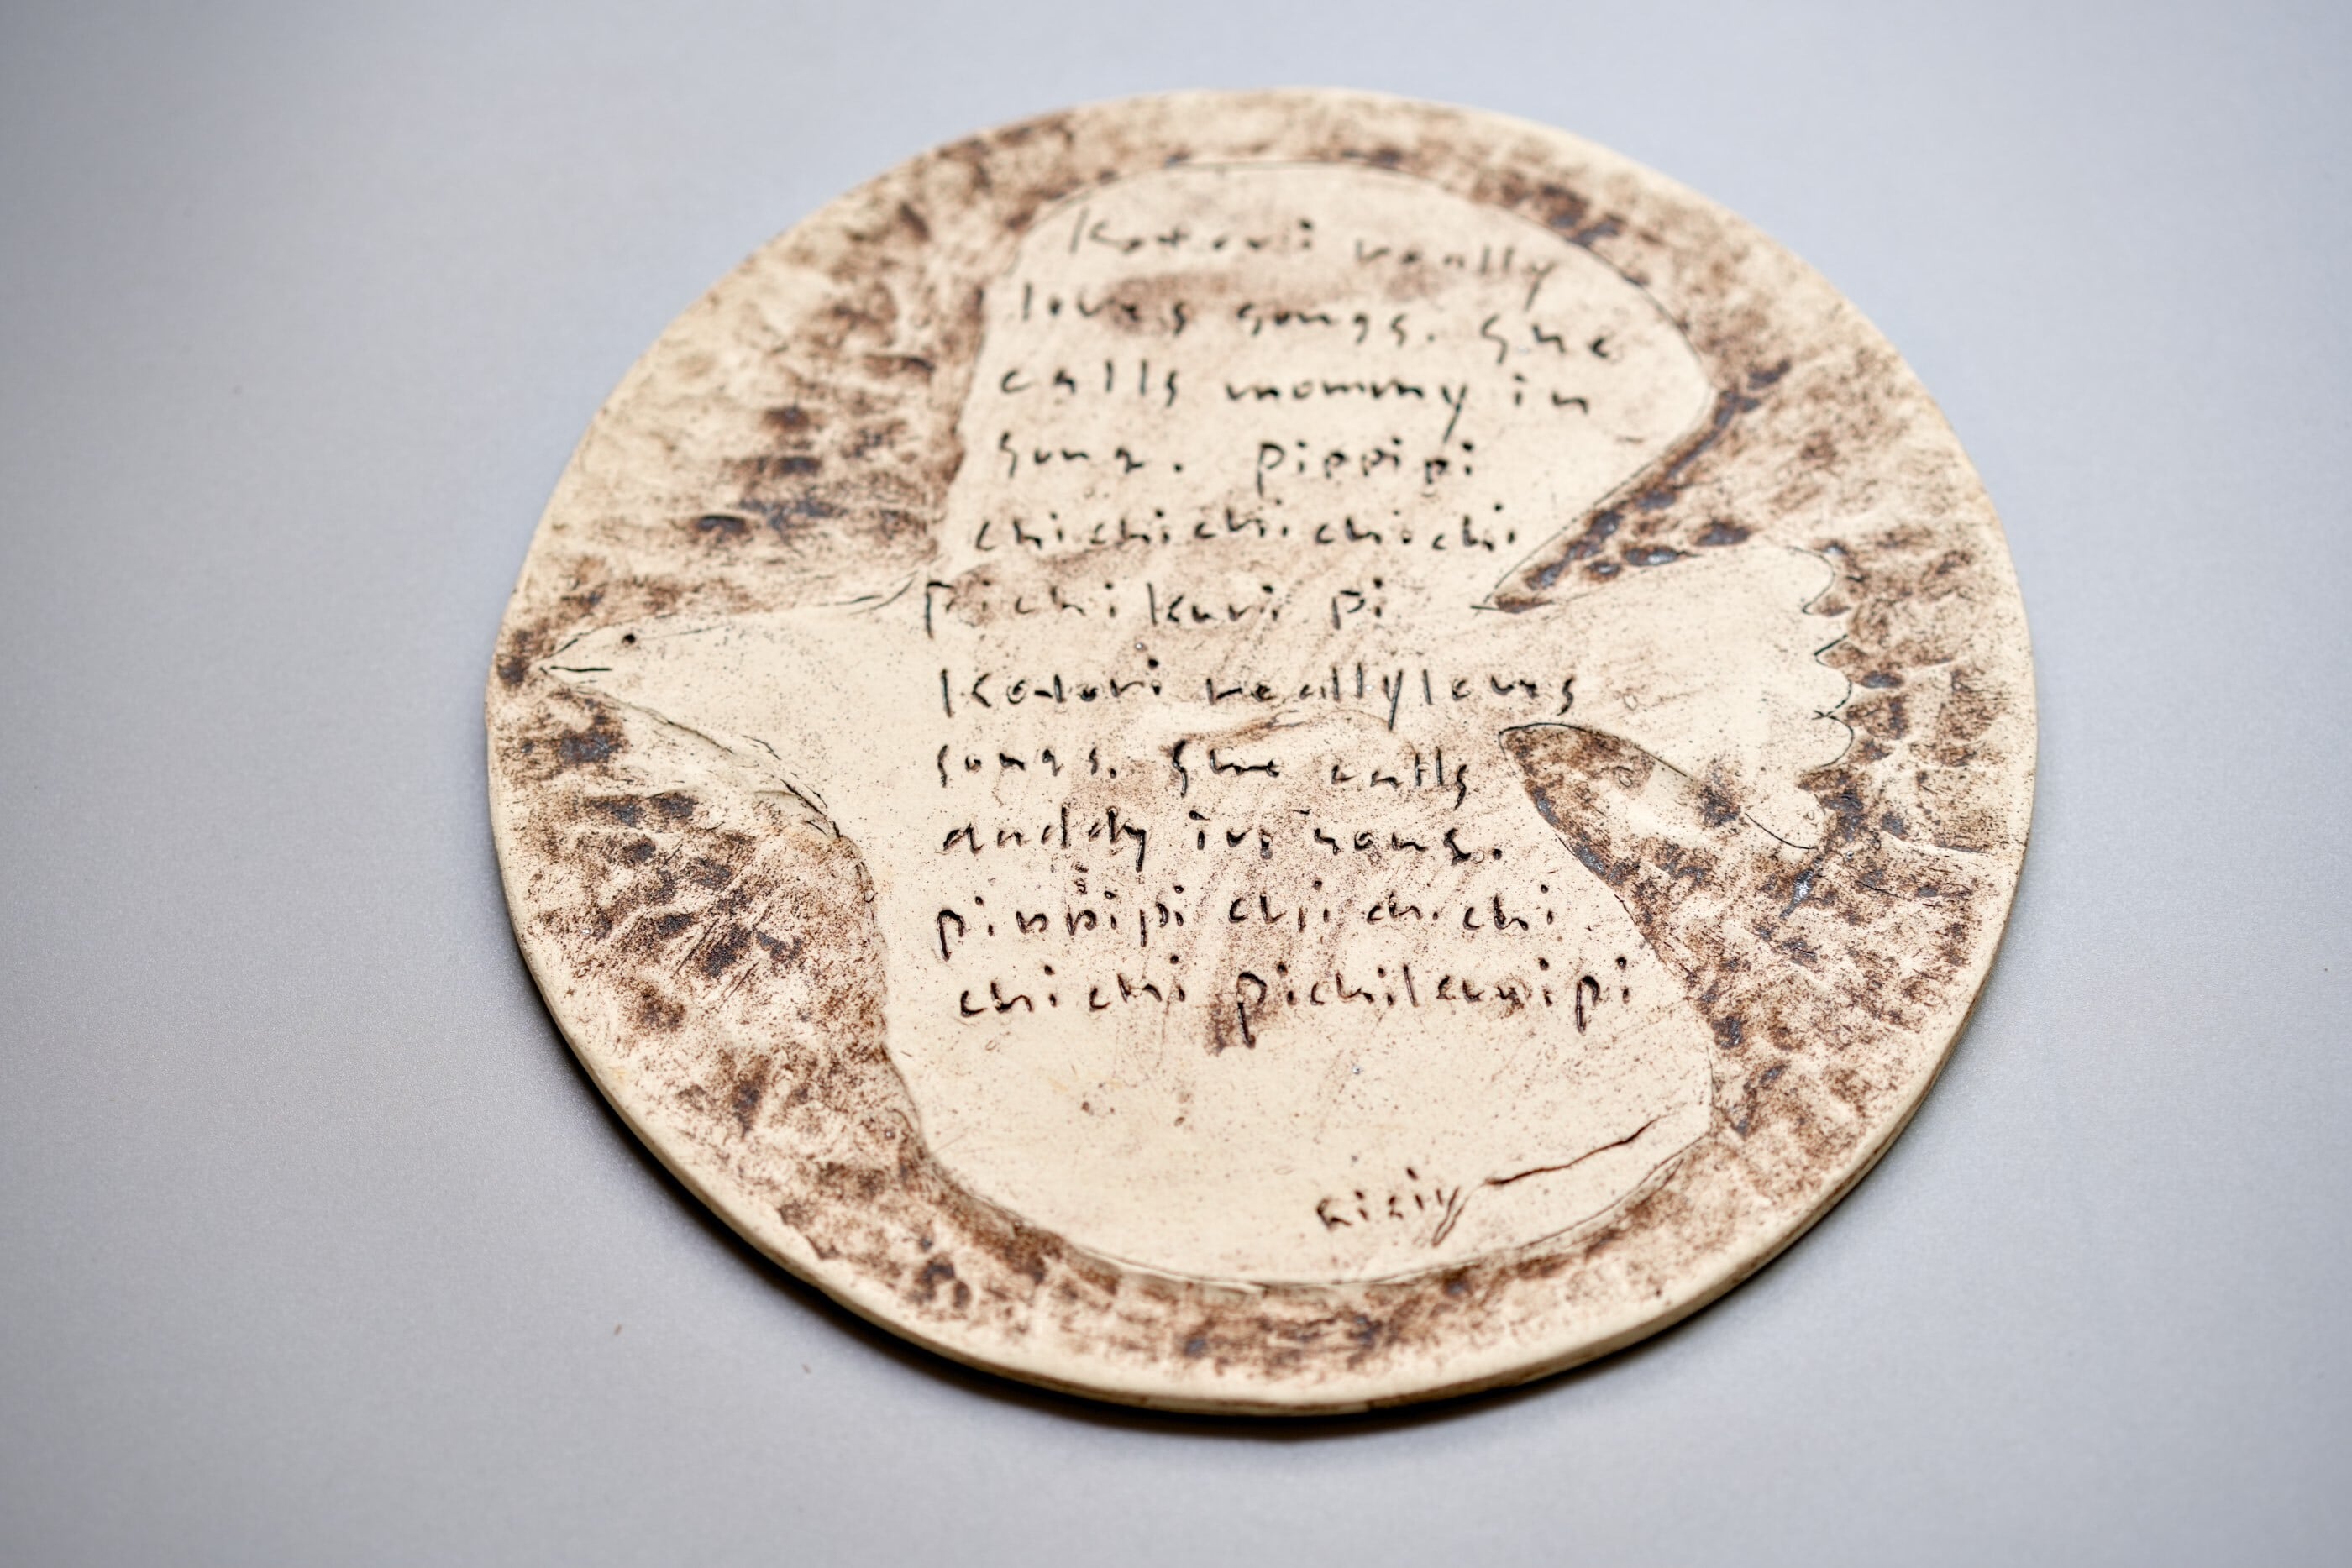 Kotori really
loves songs. She
calls mommy in
song. pippipi
chichichichichi
pichikuri pi
Kotori really loves
songs. She calls
daddy in song.
pippipi chichichi
chichi pichikuripi